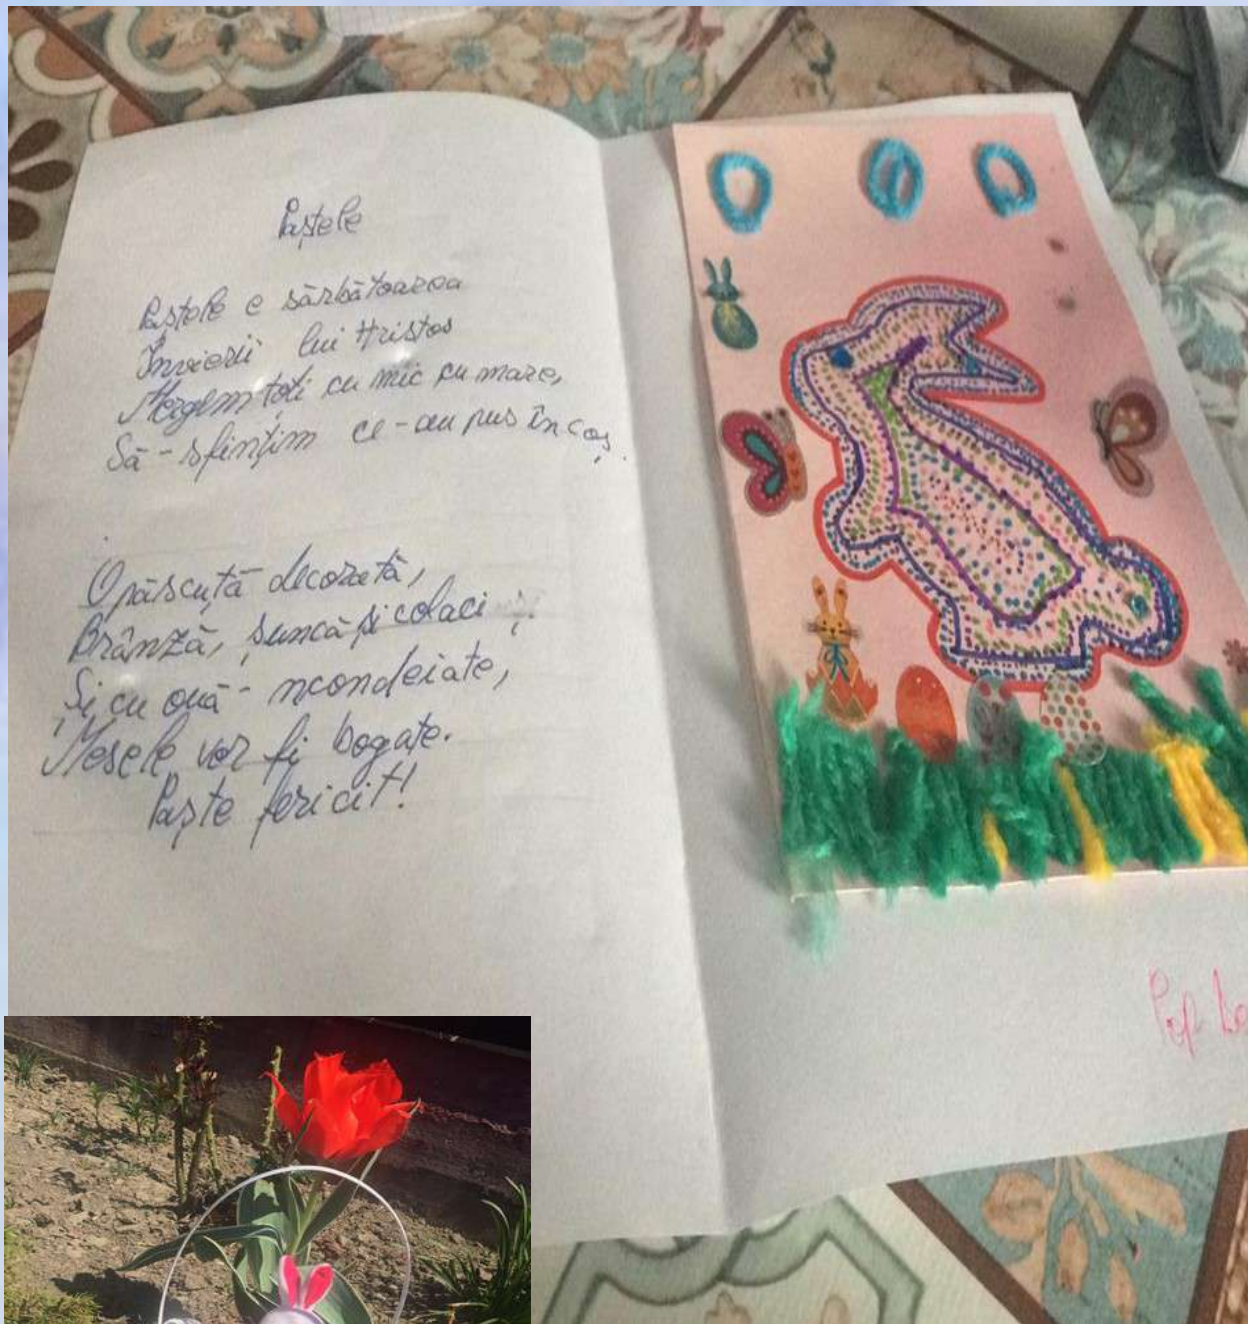 Paștele
Paștele e sărbătoarea
Învierii lui Hristos
Mergem toți cu mic cu mare,
Să-sfințim ce-au pus în coș.
O păscuță decorată,
Brânză, șuncă și colaci
Și cu ouă-ncondeiate,
Mesele vor fi bogate.
Paște fericit!
Pop